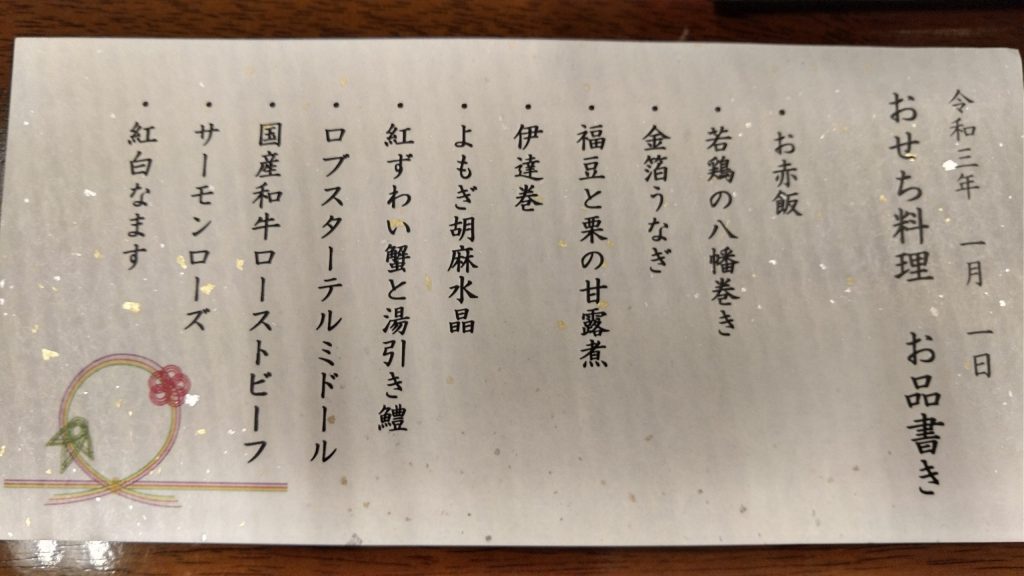 令和三年　一月　一日
おせち料理　お品書き
・お赤飯
・若鶏の八幡巻き
・金箔うなぎ
・福豆と栗の甘露煮
・伊達巻
・よもぎ胡麻水晶
・紅ずわい蟹と湯引き鱧
・ロブスターテルミドール
・国産和牛ローストビーフ
・サーモンローズ
・紅白なます